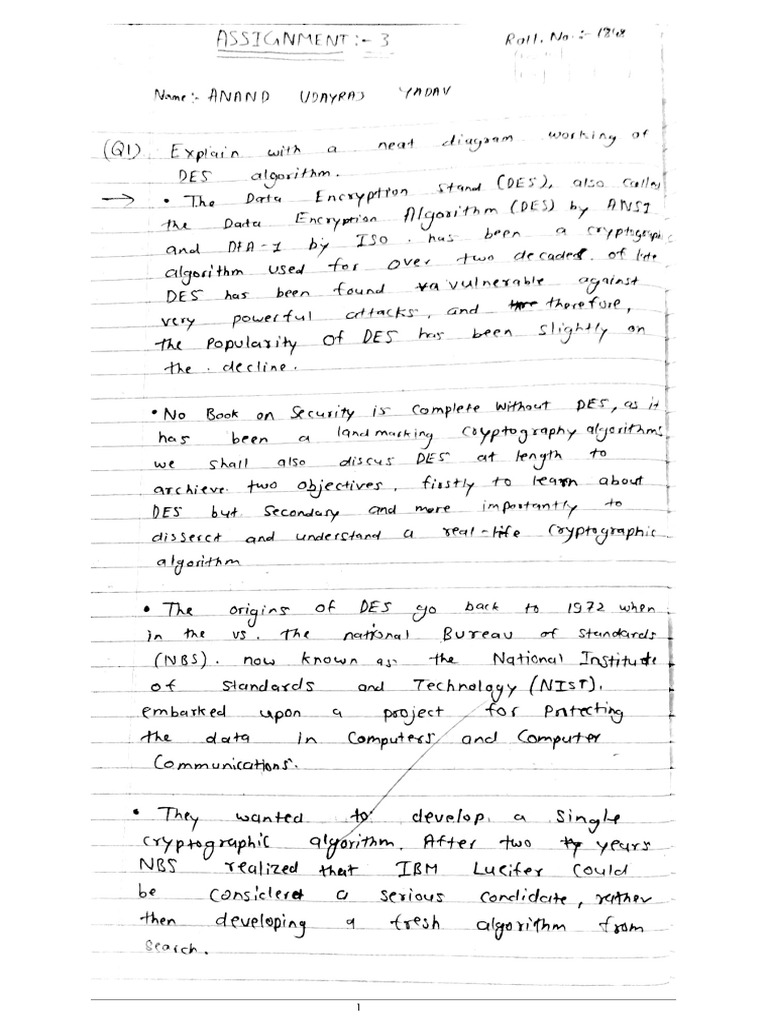 ASSIGNMENT :- 3
Roll. No. :-
Name :- ANAND UDAYRAJ YADAV
(Q1) Explain with a neat diagram working of
DES algorithm.
→ • The Data Encryption Stand (DES), also called
the Data Encryption Algorithm (DES) by ANSI
and DEA-1 by ISO. has been a cryptographic
algorithm used for over two decades. of late
DES has been found vulnerable against
very powerful attacks, and therefore,
the popularity of DES has been slightly on
the . decline.
• No Book on Security is complete without DES, as it
has been a landmarking cryptography algorithms
we shall also discus DES at length to
archieve two objectives, firstly to learn about
DES but Secondary and more importantly to
disserct and understand a real-life cryptographic
algorithm
• The origins of DES go back to 1972 when
in the vs. The national Bureau of standards
(NBS). now known as the National Institute
of Standards and Technology (NIST).
embarked upon a project for Protecting
the data in Computers and Computer
Communications.
• They wanted to develop a single
cryptographic algorithm. After two years
NBS realized that IBM Lucifer could
be considered a serious candidate, rather
then developing a fresh algorithm from
search.
1